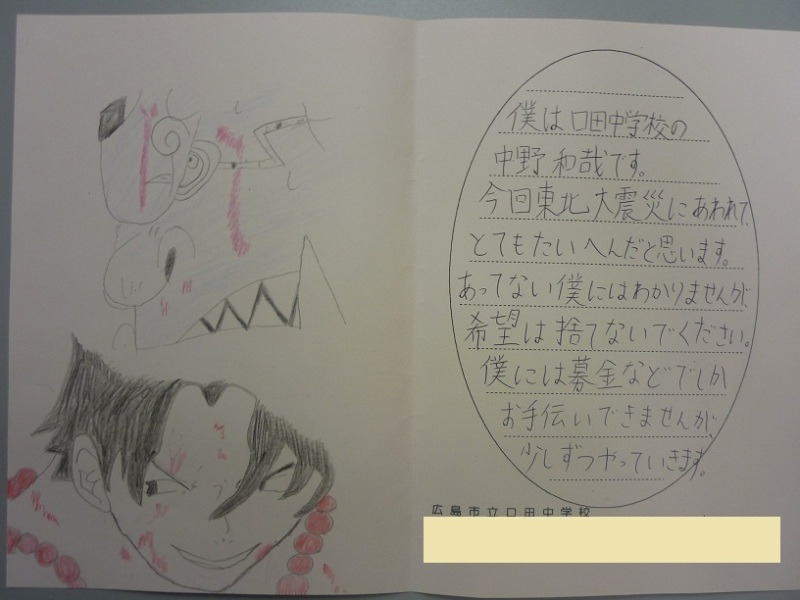 僕は口田中学校の
中野和哉です。
今回東北大震災にあわれて、
とてもたいへんだと思います。
あってない僕にはわかりませんが、
希望は捨てないでください。
僕には募金などでしか
お手伝いできませんが、
少しずつやっていきます。
広島市立口田中学校